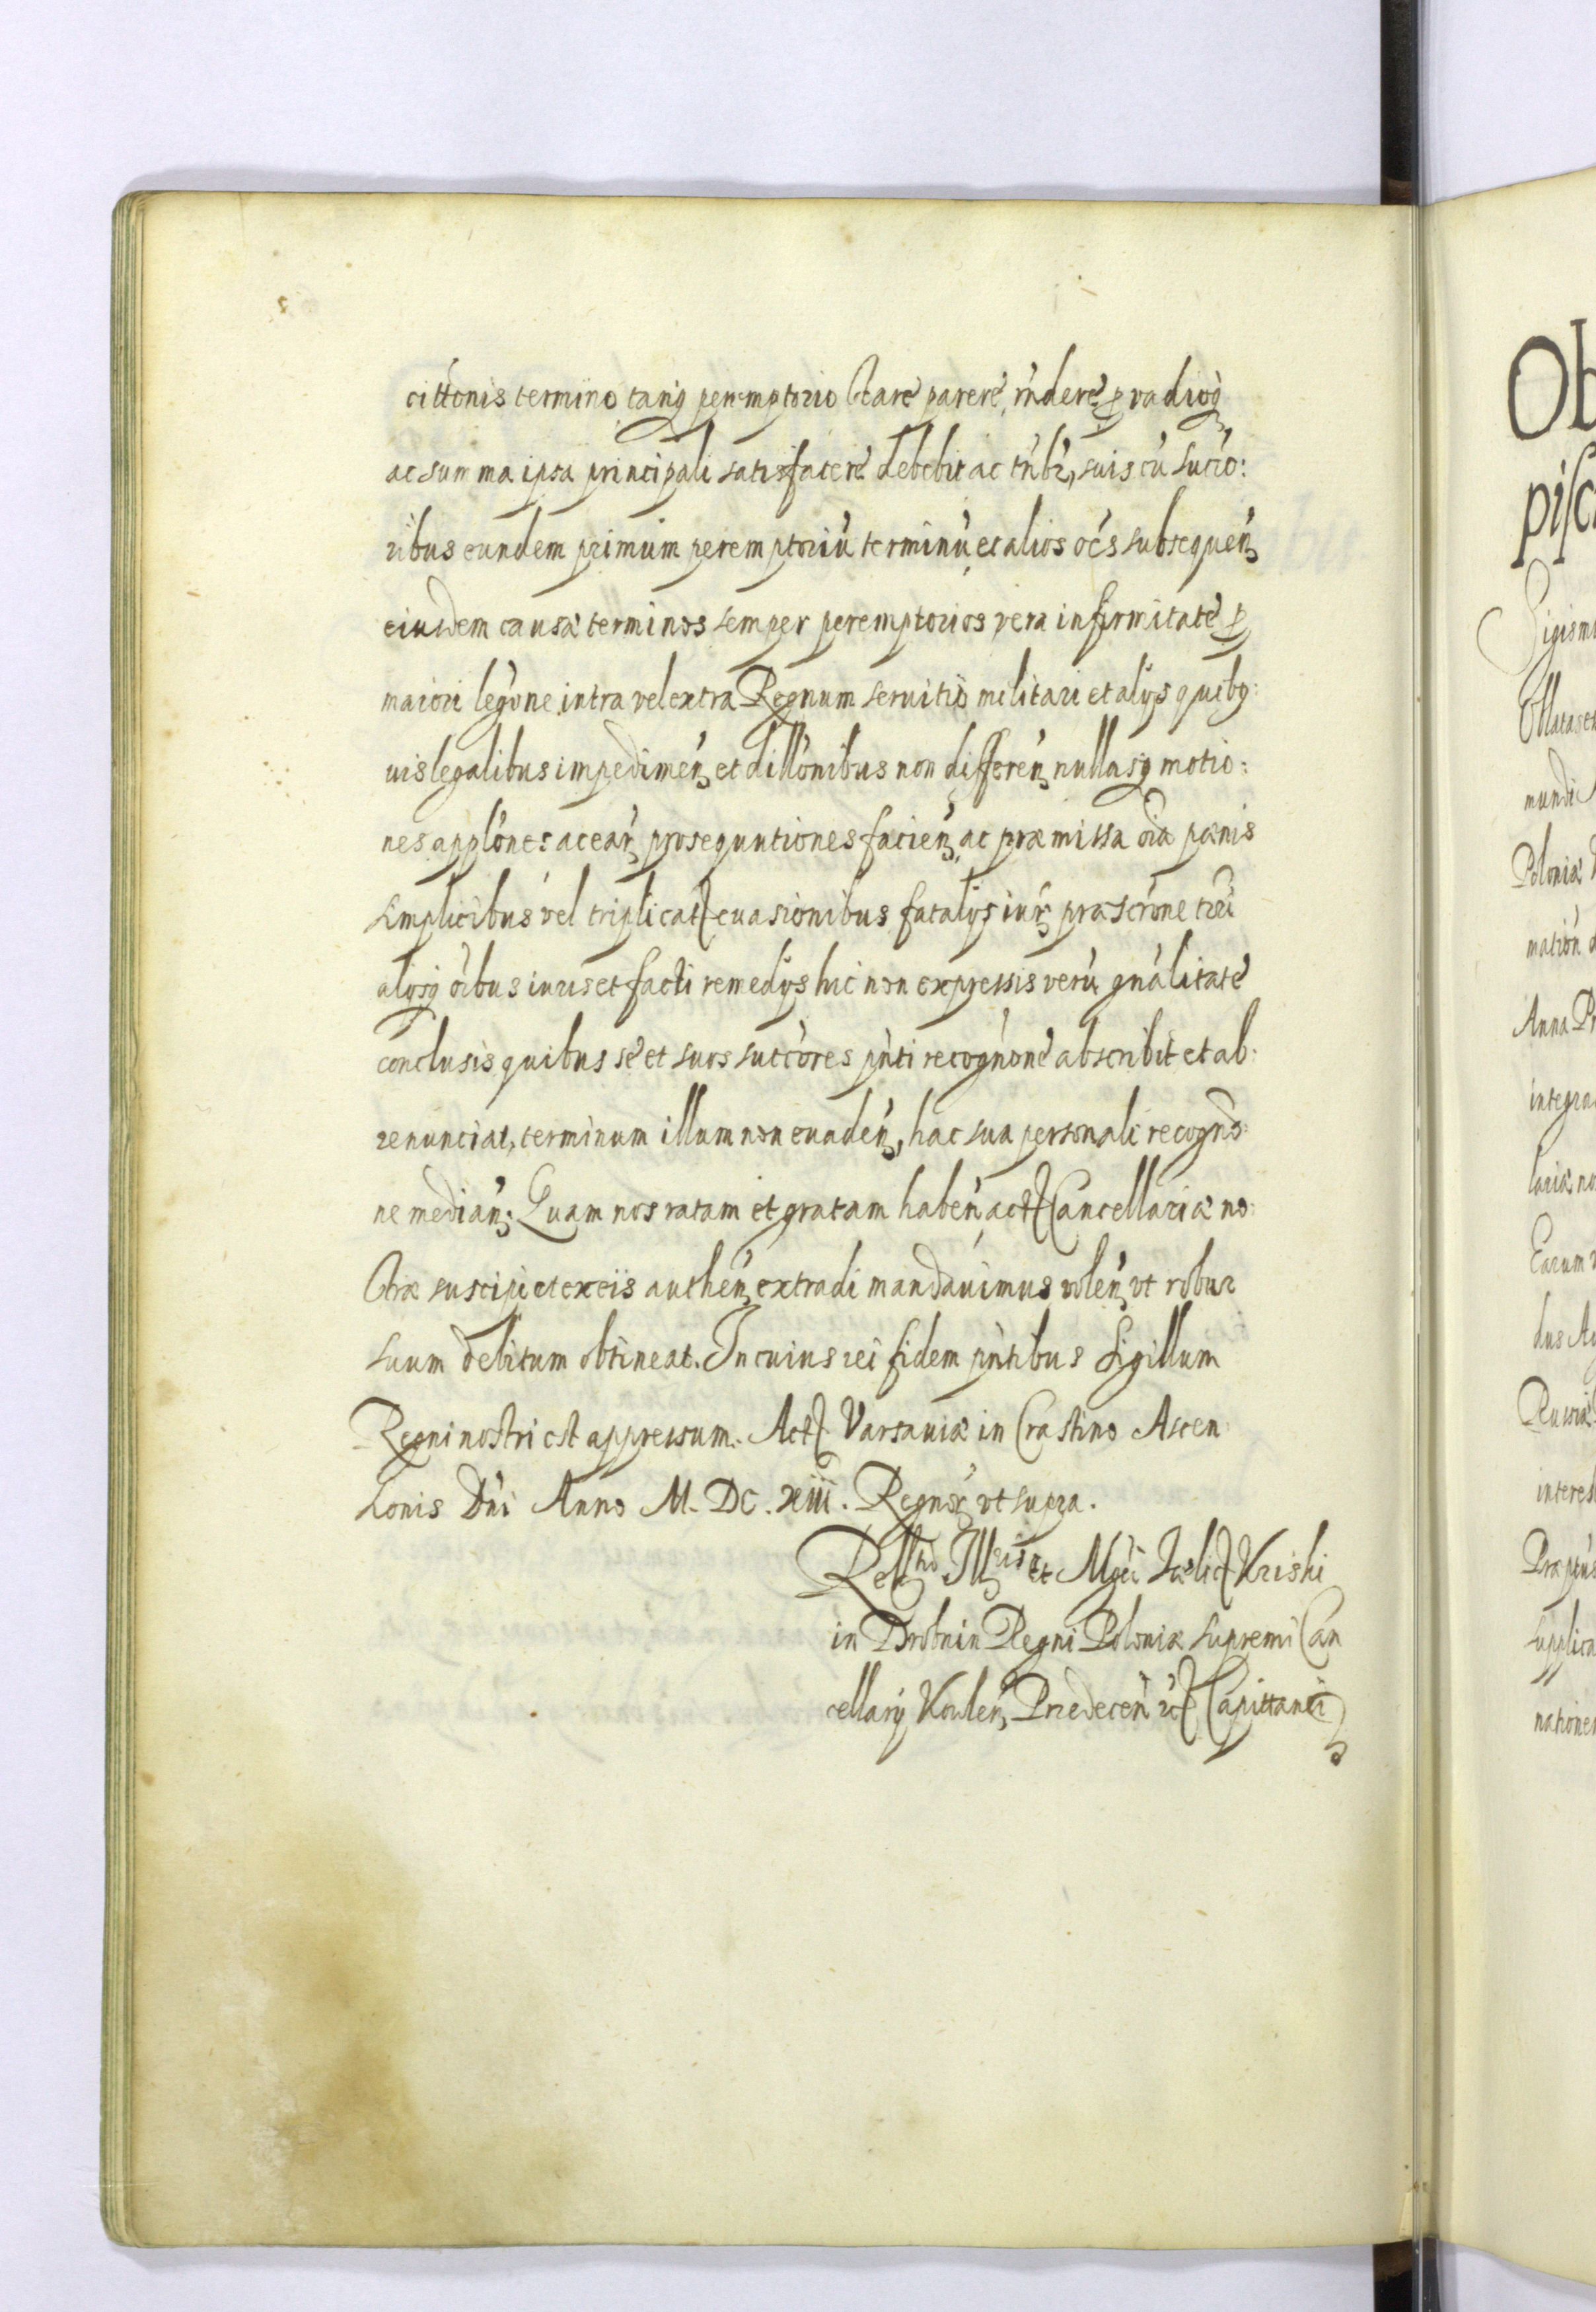 cittonis termino tanq̃ peremptorio stare parere, rn̄dere, ꝑ vadioq̃
ac summa ipsa principali satisfacere debebit ac tn̄br, suis cū succo:
ribus eundem primum peremptoriū terminū, et alios oēs subsequen̄
eiusdem causæ terminos semper peremptorios vera infirmitate ꝑ
maiori leg̃one intra vel extra Regnum seruitio militari et alijs quibq:
uis legalibus impedimen̄ et dill̃onibus non differen̄ nullasq̃ motio:
nes appl̃ones ac ear̃ prosequutiones facien̄ ac præmissa oīa pænis
simplicibus vel triplicat euasionibus fatalijs iur̃ præscr̃one
alijsq̃ oībus iuris et facti remedijs hic non expressis verū gn̄alitate
conclusis quibus se et suos succ̃ores pn̄ti recogn̄one abscribit et ab:
renunciat, terminum illum non euaden̄, hac sua personali recogn̄o:
ne median̄. Quam nos ratam et gratam haben̄ act Cancellariæ no:
stræ suscipi et ex eis authen̄ extradi mandauimus volen̄ vt robur
suum debitum obtineat. In cuius rei fidem pn̄tibus Sigillum
Regni nostri est appressum. Act Varsauiæ in Crastino Ascen:
sionis Dn̄i Anno M. DC. xiii. Regnor̃ vt supra.
Rell^tio Ill^ris et Mgci Fœlic Kriski
in Drobnin Regni Poloniæ supremi Can
cellarij Kowlen̄, Przedecen̄ ꝛc Capittanei
Ob
pisc
Sigism
Oblata et
mundi
Poloniæ
mation̄
Anna Pr
integra
lariæ no
Earum
dus Au
Russiæ
interes
Præptus
supplica
natione